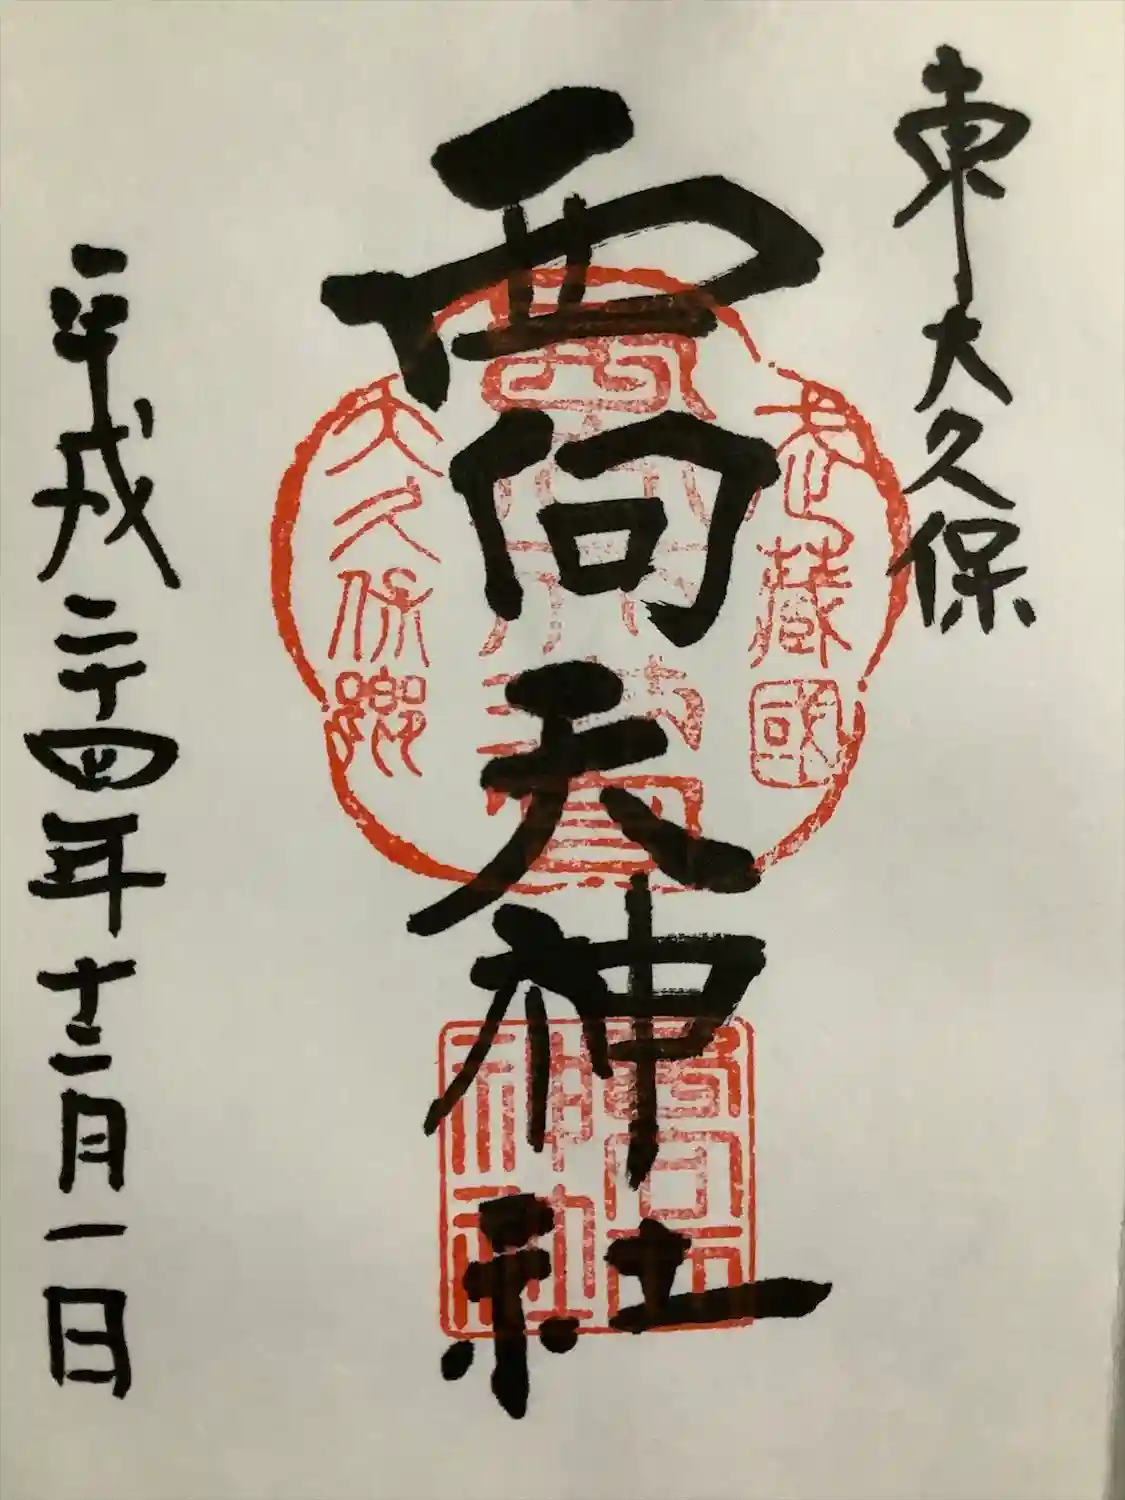 東大久保
西向天神社
平成二十四年十二月一日
武蔵國
大久保郷
西向天神社